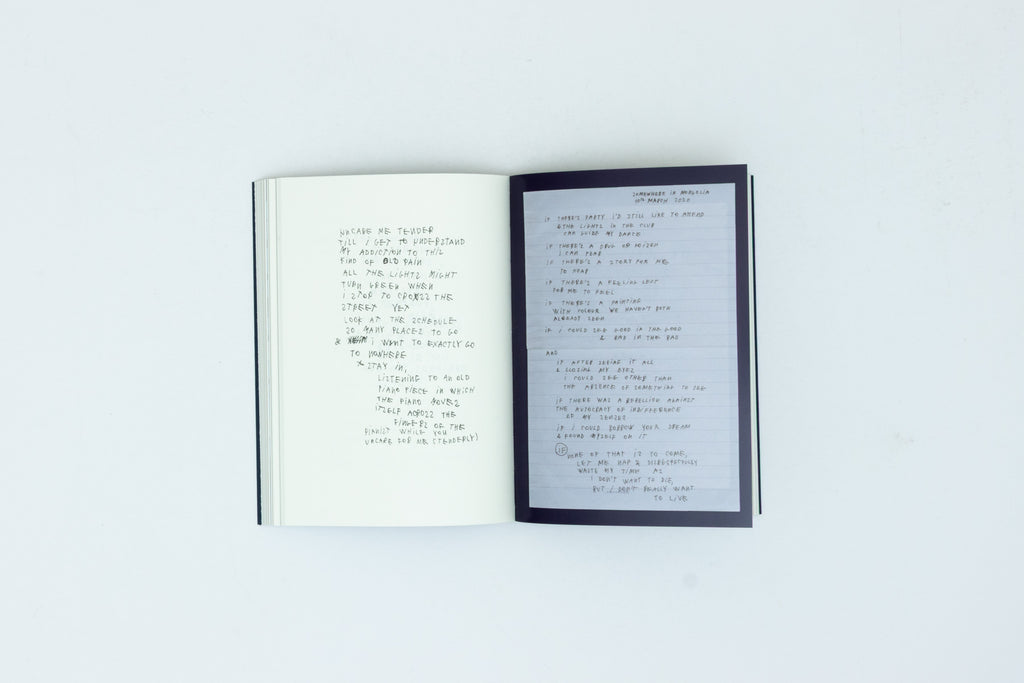 UNCARE ME TENDER
TILL I GET TO UNDERSTAND
MY ADDICTION TO THIS
KIND OF OLD PAIN
ALL THE LIGHTS MIGHT
TURN GREEN WHEN
I STOP TO CROSS THE
STREET YET
LOOK AT THE SCHEDULE
SO MANY PLACES TO GO
& I WANT TO EXACTLY GO
TO NOWHERE
STAY IN,
LISTENING TO AN OLD
PIANO PIECE IN WHICH
THE PIANO MOVES
ITSELF ACROSS THE
FINGERS OF THE
PIANIST WHILE YOU
UNCARE FOR ME (TENDERLY)
SOMEWHERE IN MONGOLIA
10TH MARCH 2020
IF THERE'S PARTY I'D STILL LIKE TO ATTEND
& THE LIGHTS IN THE CLUB
CAN GUIDE MY DANCE
IF THERE'S A DRUG OR POISON
I CAN
IF THERE'S A STORY FOR ME
TO HEAR
IF THERE'S A FEELING LEFT
FOR ME TO FEEL
IF THERE'S A PAINTING
WITH COLOUR WE HAVEN'T BOTH
ALREADY SEEN
IF I COULD SEE GOOD IN THE GOOD
& BAD IN THE BAD
AND
IF AFTER SEEING IT ALL
& CLOSING MY EYES
I COULD SEE OTHER THAN
THE ABSENCE OF SOMETHING TO SEE
IF THERE WAS A REBELLION AGAINST
THE AUTOCRACY OF INDIFFERENCE
OF MY SENSES
IF I COULD BORROW YOUR DREAM
& FOUND MYSELF ON IT
IF NONE OF THAT IS TO COME,
LET ME NAP & DISRESPECTFULLY
WASTE MY TIME AS
I DON'T WANT TO DIE,
BUT I DON'T REALLY WANT
TO LIVE